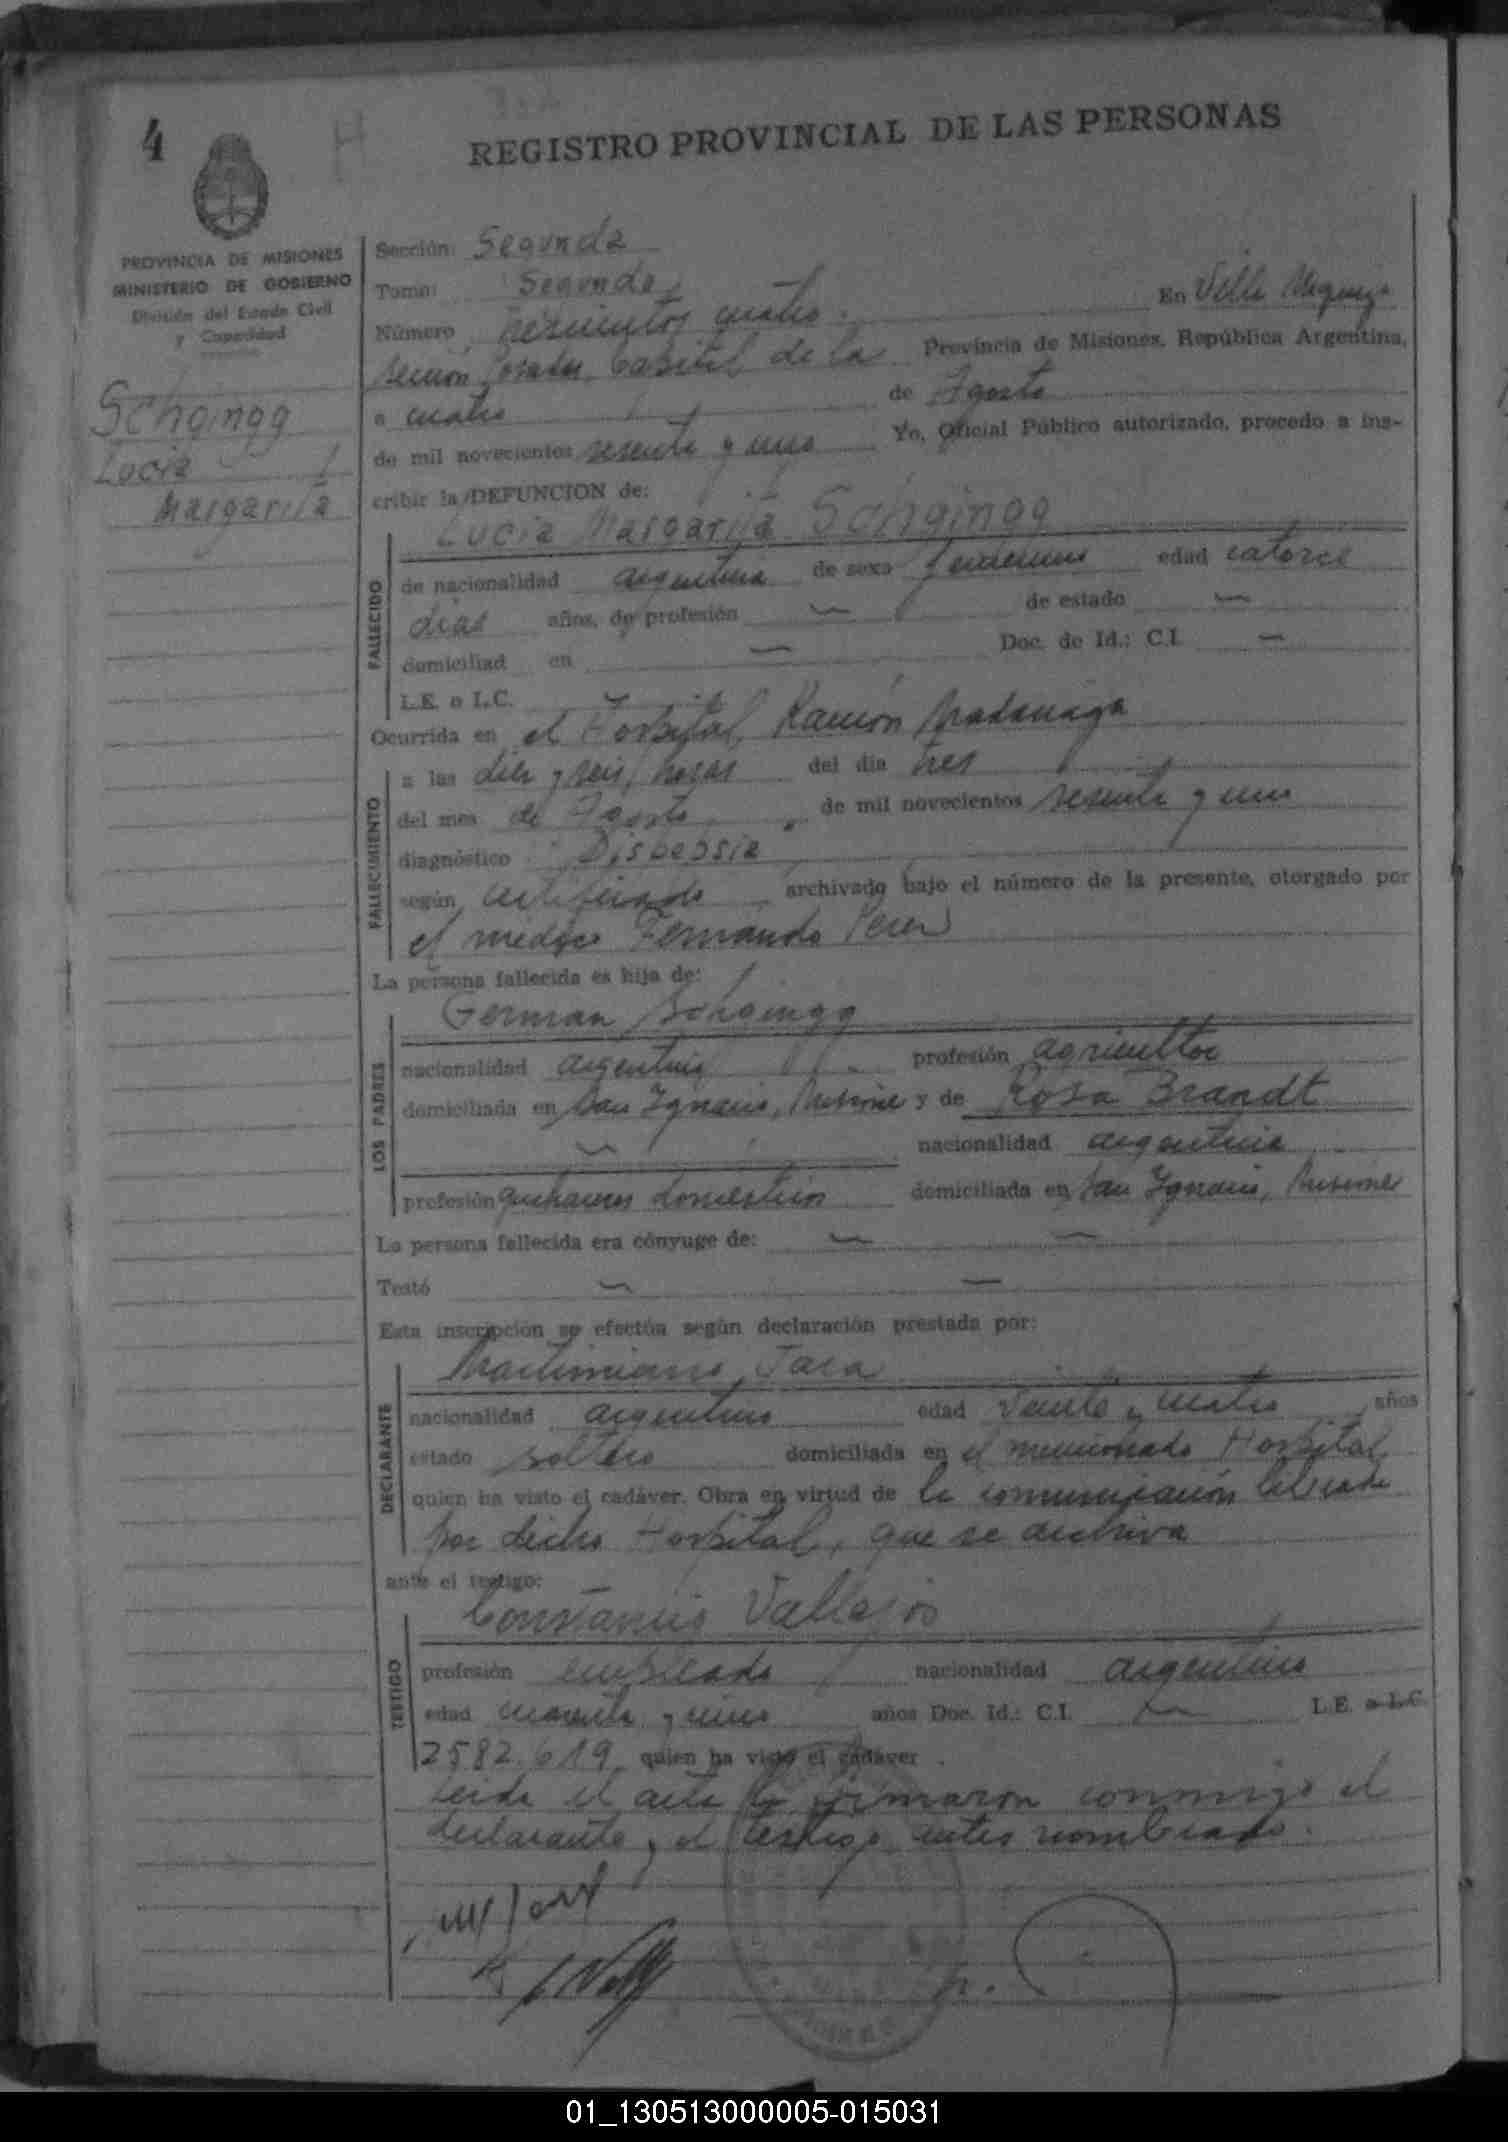 4
REGISTRO PROVINCIAL DE LAS PERSONAS
PROVINCIA DE MISIONES
MINISTERIO DE GOBIERNO
División del Estado Civil
y Capacidad
Schgingg
Lucia
Margarita
Sección: Segunda
Tomo: Segundo
En Villa Urquiza
Número trescientos cuatro.
sección Posadas, Capital de la Provincia de Misiones, República Argentina,
a cuatro de Agosto
de mil novecientos sesenta y uno Yo, Oficial Público autorizado, procedo a ins-
cribir la DEFUNCION de:
Lucia Margarita Schgingg
FALLECIDO
de nacionalidad argentina de sexo femenino edad catorce
días años, de profesión — de estado —
domiciliad en — Doc. de Id.: C.I. —
L.E. o L.C. —
Ocurrida en el Hospital Ramón Madariaga
FALLECIMIENTO
a las diez y seis horas del día tres
del mes de Agosto de mil novecientos sesenta y uno
diagnóstico Dispepsia
según certificado archivado bajo el número de la presente, otorgado por
el médico Fernando Perez
La persona fallecida es hija de:
LOS PADRES
German Schgingg
nacionalidad argentina profesión agricultor
domiciliada en San Ignacio, Misiones y de Rosa Brandt
— nacionalidad argentina
profesión quehaceres domésticos domiciliada en San Ignacio, Misiones
La persona fallecida era cónyuge de: — —
Testó — —
Esta inscripción se efectúa según declaración prestada por:
DECLARANTE
Maximiano Jara
nacionalidad argentino edad veinte y cuatro años
estado soltero domiciliada en el mencionado Hospital
quien ha visto el cadáver. Obra en virtud de la comunicación librada
por dicho Hospital, que se archiva
ante el testigo:
TESTIGO
Constancio Vallejos
profesión empleado nacionalidad argentino
edad cuarenta y uno años Doc. Id.: C.I. — L.E. o L.C.
2582.619 quien ha visto el cadáver.
Leida el acta la firmaron conmigo el
declarante y el testigo antes nombrado.
01_130513000005-015031